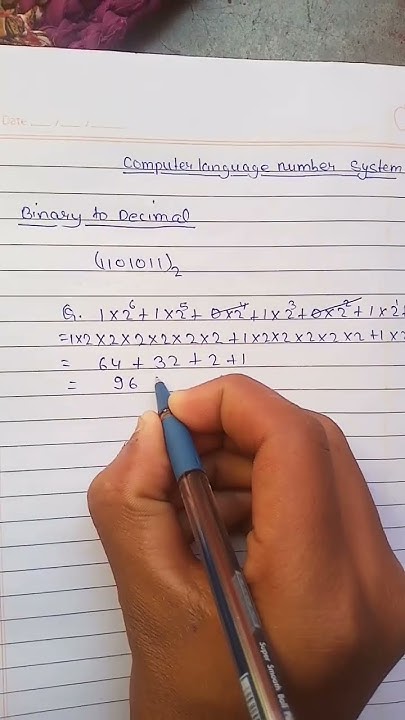 Date
Computer language number System
Binary to Decimal
(1101011)₂
Q. 1×2⁶+1×2⁵+0×2⁴+1×2³+0×2²+1×2¹
=1×2×2×2×2×2×2+1×2×2×2×2×2+1×
= 64+32+2+1
= 96
Super Smooth Ball